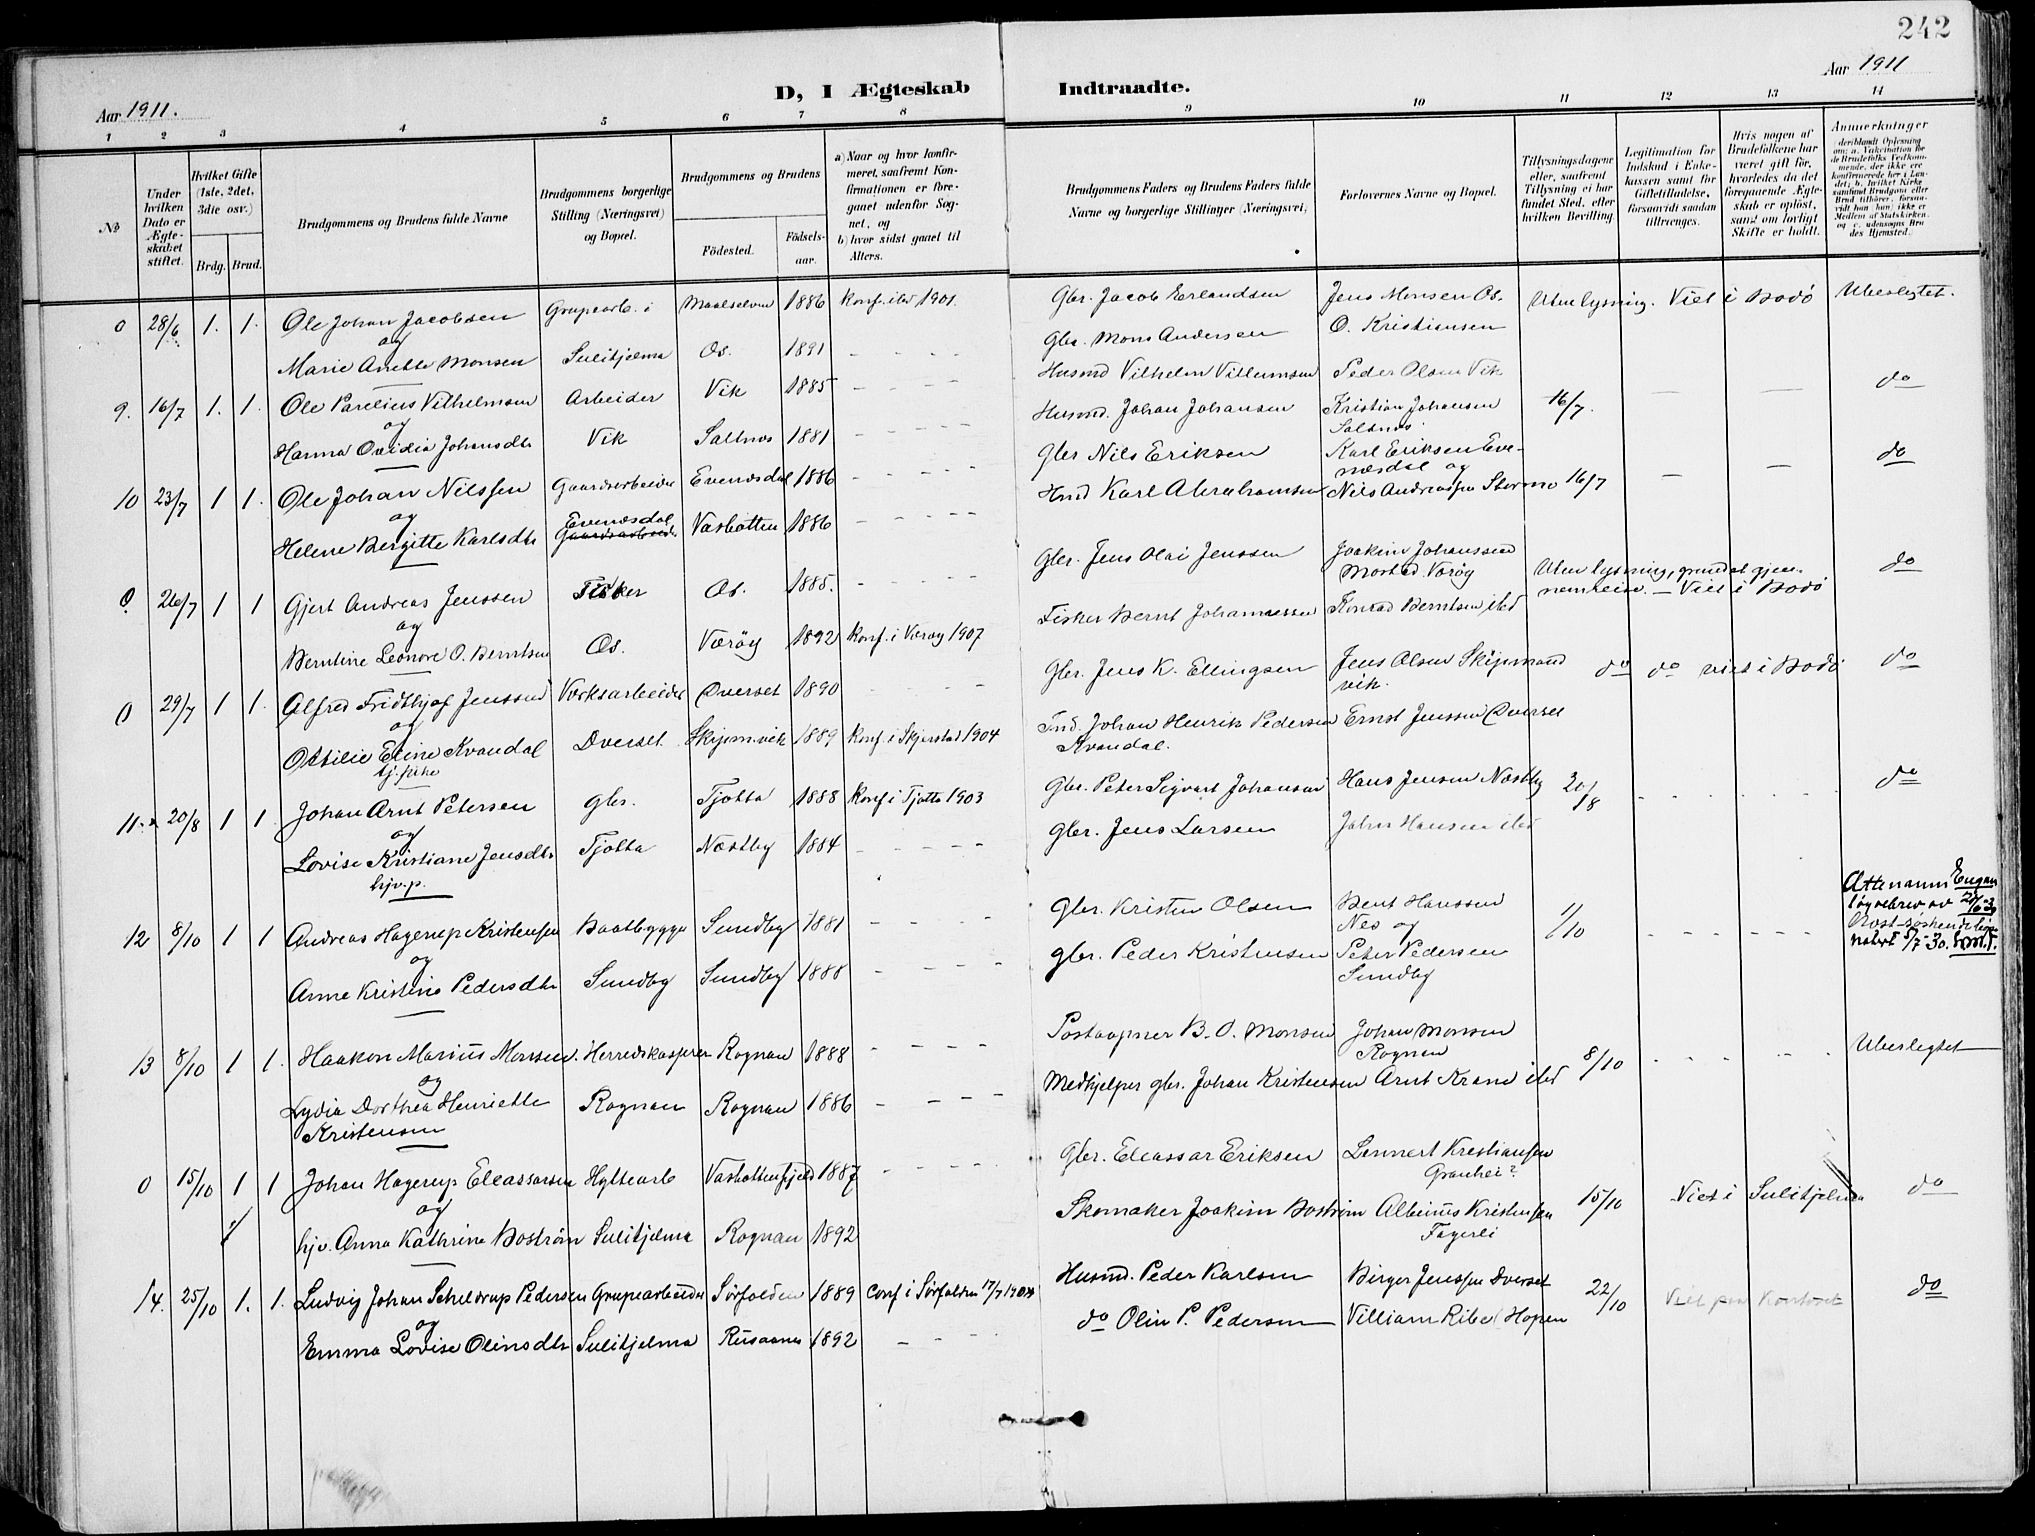 242
Aar 1911.
D, I Ægteskab Indtraadte.
Aar 1911
1 2 3 4 5 6 7 8 9 10 11 12 13 14
№
Under hvilken Dato er Ægteskabet stiftet.
Hvilket Gifte (1ste, 2det, 3die osv.)
Brdg. Brud.
Brudgommens og Brudens fulde Navne
Brudgommens borgerlige Stilling (Næringsvei) og Bopæl.
Brudgommens og Brudens
Födested. Födselsaar.
a) Naar og hvor konfirmeret, saafremt Konfirmationen er foregaaet udenfor Sognet, og
b) hvor sidst gaaet til Alters.
Brudgommens Faders og Brudens Faders fulde Navne og borgerlige Stillinger (Næringsvei)
Forlovernes Navne og Bopæl.
Tillysningsdagene eller, saafremt Tillysning ei har fundet Sted, efter hvilken Bevilling.
Legitimation for Indskud i Enkekassen samt for Giftetilladelse, forsaavidt saadan tiltrænges.
Hvis nogen af Brudefolkene har været gift för, hvorledes da det foregaaende Ægteskab er oplöst, samt om lovligt Skifte er holdt.
Anmerkninger
0 28/6 1. 1. Ole Johan Jacobsen Grupearb. i Maalselven 1886 Konf. ibd 1901. Gbr. Jacob Erlandsen Jens Monsen Os. Uten lysning. Viet i Bodö Ubeslegtet.
og
Marie Anette Monsen Sulitjelma Os. 1891 - - - - Gbr. Mons Andersen O. Kristiansen
9. 16/7 1. 1. Ole Parelius Vilhelmsen Arbeider Vik 1885 - - - - Husmd Vilhelm Villumsen Peder Olsen Vik 16/7. — — do
og
Hanna Ovidia Johansdtr Vik Saltnes 1881 - - - - Husmd. Johan Johansen Kristian Johansen Saltnes
10 23/7 1 1. Ole Johan Nilssen Gaardsarbeider Evenesdal 1886 - - - - Gbr Nils Eriksen Karl Eriksen Evenæsdal og 16/7 — — do
og
Helene Bergitte Karlsdtr Evenæsdal Vasbotten 1886 - - - - Hmd Karl Abrahamsen Nils Andreassen Stormo
0. 26/7 1 1 Gjert Andreas Jenssen Fisker Os. 1885. - - - - Gbr. Jens Olai Jenssen Joakim Johanssen Mostad Værøy Uten lysning, grundet gjennemreise. — Viet i Bodö do
og
Berntine Leonore O. Berntsen Os. Værøy 1892 Konf. i Værøy 1907 Fisker Bernt Johannessen Konrad Berntsen ibd
0 29/7 1 1. Alfred Fridthjof Jenssen Verksarbeider Dverset 1890 - - - - Gbr. Jens K. Ellingsen Jens Olsen Skjemandvik. do do viet i Bodö do
og
Ottilie Eline Kvandal Dverset. Skjem.vik 1889 Konf. i Skjerstad 1904 Ind. Johan Henrik Pedersen Kvandal. Ernst Jenssen Dverset
tj. pike
11. 20/8 1 1. Johan Arnt Petersen Gbr. Tjøtta 1888 Konf. i Tjøtta 1903 Gbr. Peter Sigvart Johansen Hans Jensen Næstby 20/8 - - - - do
og
Lovise Kristiane Jensdtr Tjøtta Næstby 1884 - - - - Gbr. Jens Larsen Johan Hansen ibd
hjv.p.
12 8/10 1 1 Andreas Hagerup Kristensen Baatbygger Sundby 1881 - - - - Gbr. Kristen Olsen Bent Hanssen Nes og 1/10 - - - -
og
Anne Kristine Pedersdtr Sundby Sundby 1888 - - - - gbr. Peder Kristensen Peter Pedersen Sundby
13 8/10 1 1. Haakon Marius Monsen Herredskasserer Rognan 1888 - - - - Postaapner B. O. Monsen Johan Monsen Rognan 8/10 - - - - Ubeslegtet
og
Lydia Dorthea Henriette Kristensen Rognan Rognan 1886 - - - - Medhjelper gbr. Johan Kristensen Arnt Krane ibd
0 15/10 1 1 Johan Hagerup Eleassarsen Hyttearb Vasbottenfjeld 1887 - - - - Gbr. Eleassar Eriksen Lennert Kristiansen Granhei? 15/10 Viet i Sulitjelma do
og
hjv. Anna Kathrine Boström Sulitjelma Rognan 1892 Skomaker Joakim Boström Albinus Kristensen Fagerli
14. 25/10 1. 1. Ludvig Johan Scheldrup Pedersen Grupearbeider Sørfolden 1889 Conf i Sørfolden Husmd. Peder Karlsen Birger Jenssen Dverset 22/10 Viet paa Kontoret do
og
Emma Lovise Olinsdtr Sulitjelma Rusaanes 1892 - - do Olin P. Pedersen Villiam Ribe Hopen